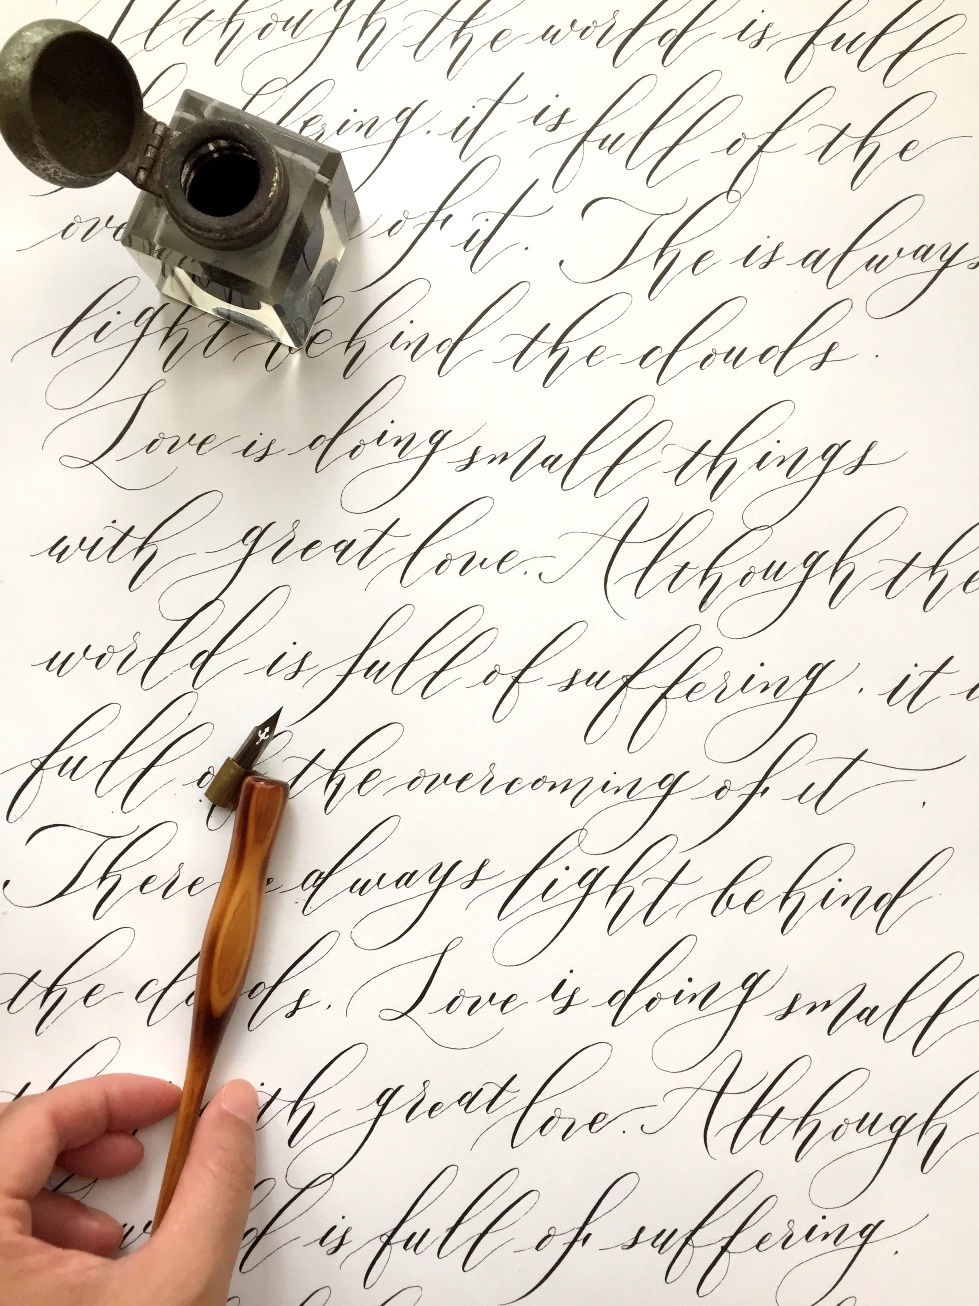 Although the world is full
ering. it is full of the
of it. The is always
light behind the clouds.
Love is doing small things
with great love. Although the
world is full of suffering. it
full the overcoming of it.
There always light behind
the clouds. Love is doing small
with great love. Although
is full of suffering.